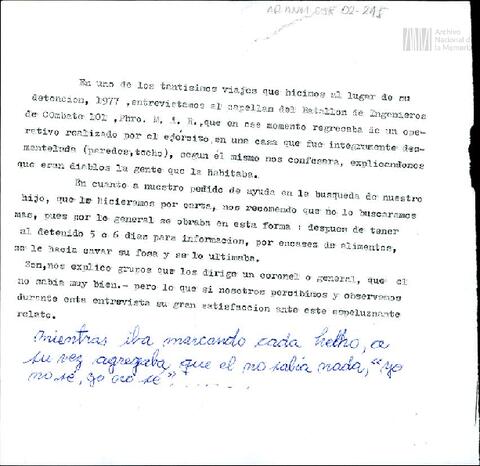 AR ANM, CSR 02-245
Archivo
Nacional de
la Memoria
En uno de los tantisimos viajes que hicimos al lugar de su
detencion, 1977 ,entrevistamos al capellam del Batallon de Ingenieros
de COmbate 101 ,Pbro. M. A. R.,que en ese momento regresaba de un ope-
rativo realizado por el ejército,en una casa que fue integramente des-
mantelada (paredes,techo), segun él mismo nos confesara, explicandonos
que eran diablos la gente que la habitaba.
En cuanto a nuestro pedido de ayuda en la busqueda de nuestro
hijo, que le hicieramos por carta, nos recomendo que no lo buscaramos
mas, pues por lo general se obraba en esta forma : despues de tener
al detenido 5 o 6 dias para informacion, por escases de alimentos,
se le hacia cavar su fosa y se lo ultimaba.
Son,nos explico grupos que los dirige un coronel o general, que el
no sabia muy bien.- pero lo que si nosotros percibimos y observamos
durante esta entrevista su gran satisfaccion ante este espeluznante
relato.
mientras iba marcando cada hecho, a
su vez agregaba, que el no sabia nada, "yo
no sé, yo no sé", .......